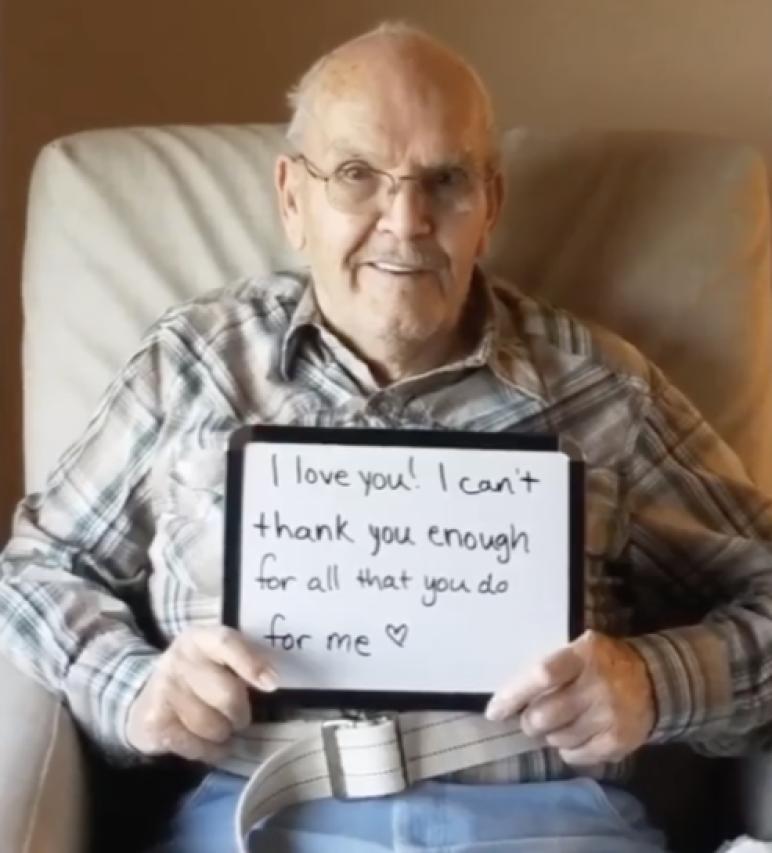 I love you! I can't
thank you enough
for all that you do
for me ♡